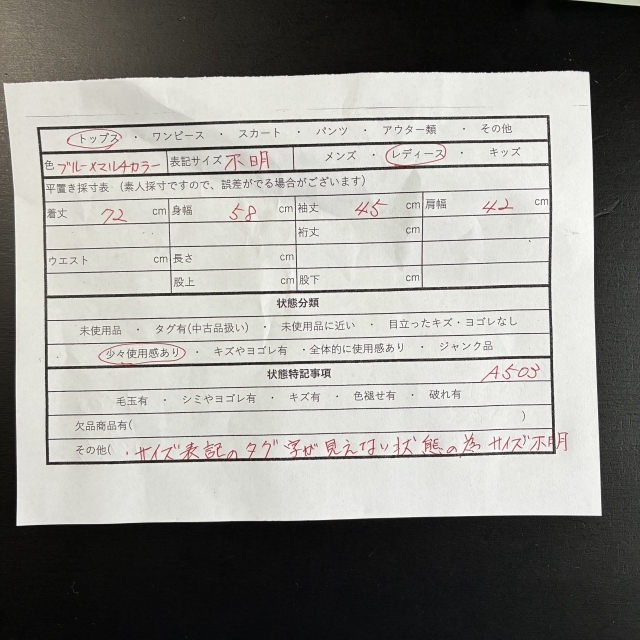 トップス ・ ワンピース ・ スカート ・ パンツ ・ アウター類 ・ その他
色 ブルー×マルチカラー 表記サイズ 不明 メンズ ・ レディース ・ キッズ
平置き採寸表 (素人採寸ですので、誤差がでる場合がございます)
着丈 72 cm 身幅 58 cm 袖丈 45 cm 肩幅 42 cm
裄丈 cm
ウエスト cm 長さ cm
股上 cm 股下 cm
状態分類
未使用品 ・ タグ有(中古品扱い) ・ 未使用品に近い ・ 目立ったキズ・ヨゴレなし
・ 少々使用感あり ・ キズやヨゴレ有 ・全体的に使用感あり ・ ジャンク品
状態特記事項 A503
毛玉有 ・ シミやヨゴレ有 ・ キズ有 ・ 色褪せ有 ・ 破れ有
欠品商品有( )
その他( ・サイズ表記のタグ字が見えない状態の為サイズ不明